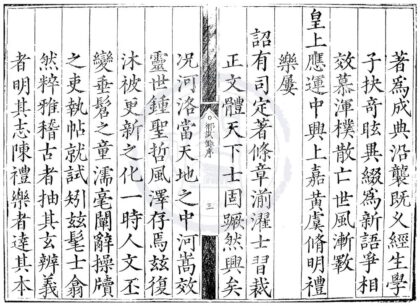 著爲成典沿襲既乂經生學
子抉奇昡異綴爲新語爭相
效慕渾樸散亡世風漸斁
皇上應運中興上嘉黃虞脩明禮
樂屢
詔有司定著條章湔濯士習裁
正文體天下士固蹶然興矣
三
况河洛當天地之中河嵩效
靈世鍾聖哲風澤存焉玆復
沐被更新之化一時人文丕
變垂髫之童濡毫闚辭操牘
之吏執帖就試矧玆髦士翕
然粹雅稽古者抽其玄辨義
者明其志陳禮樂者達其本